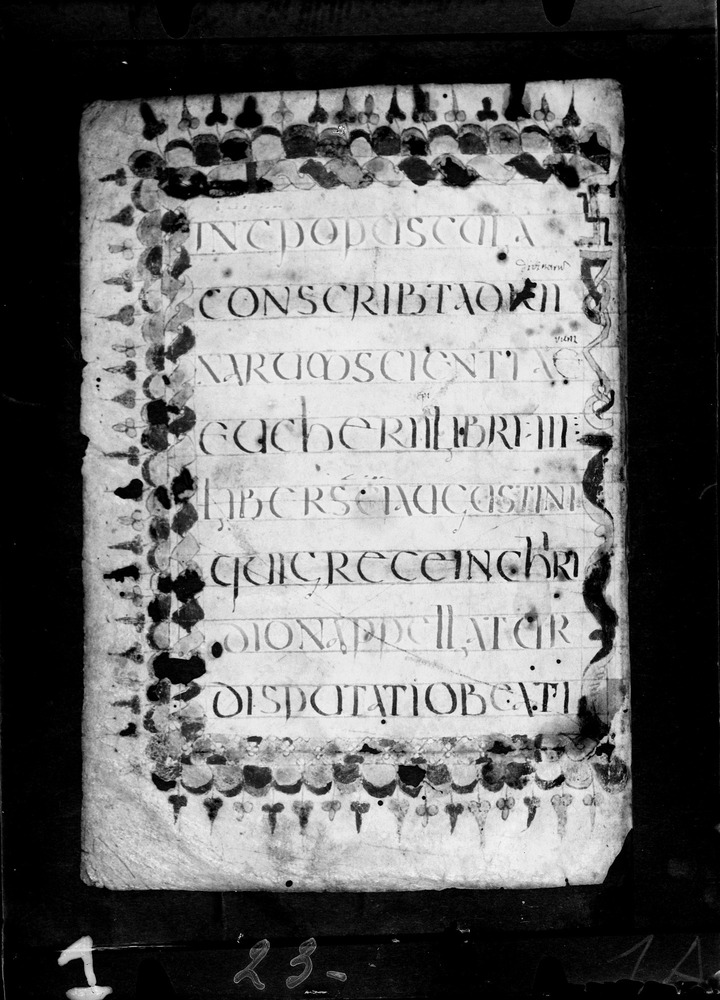 INCP OPUSCULA
CONSCRIBTA DIVII
NARUM SCIENTIAE
EUCHERII LIBRI III
LIBER SCI AUGUSTINI
QUI GRECE INCHRI
DION APPELLATUR
DISPUTATIO BEATI
1
23-
1A